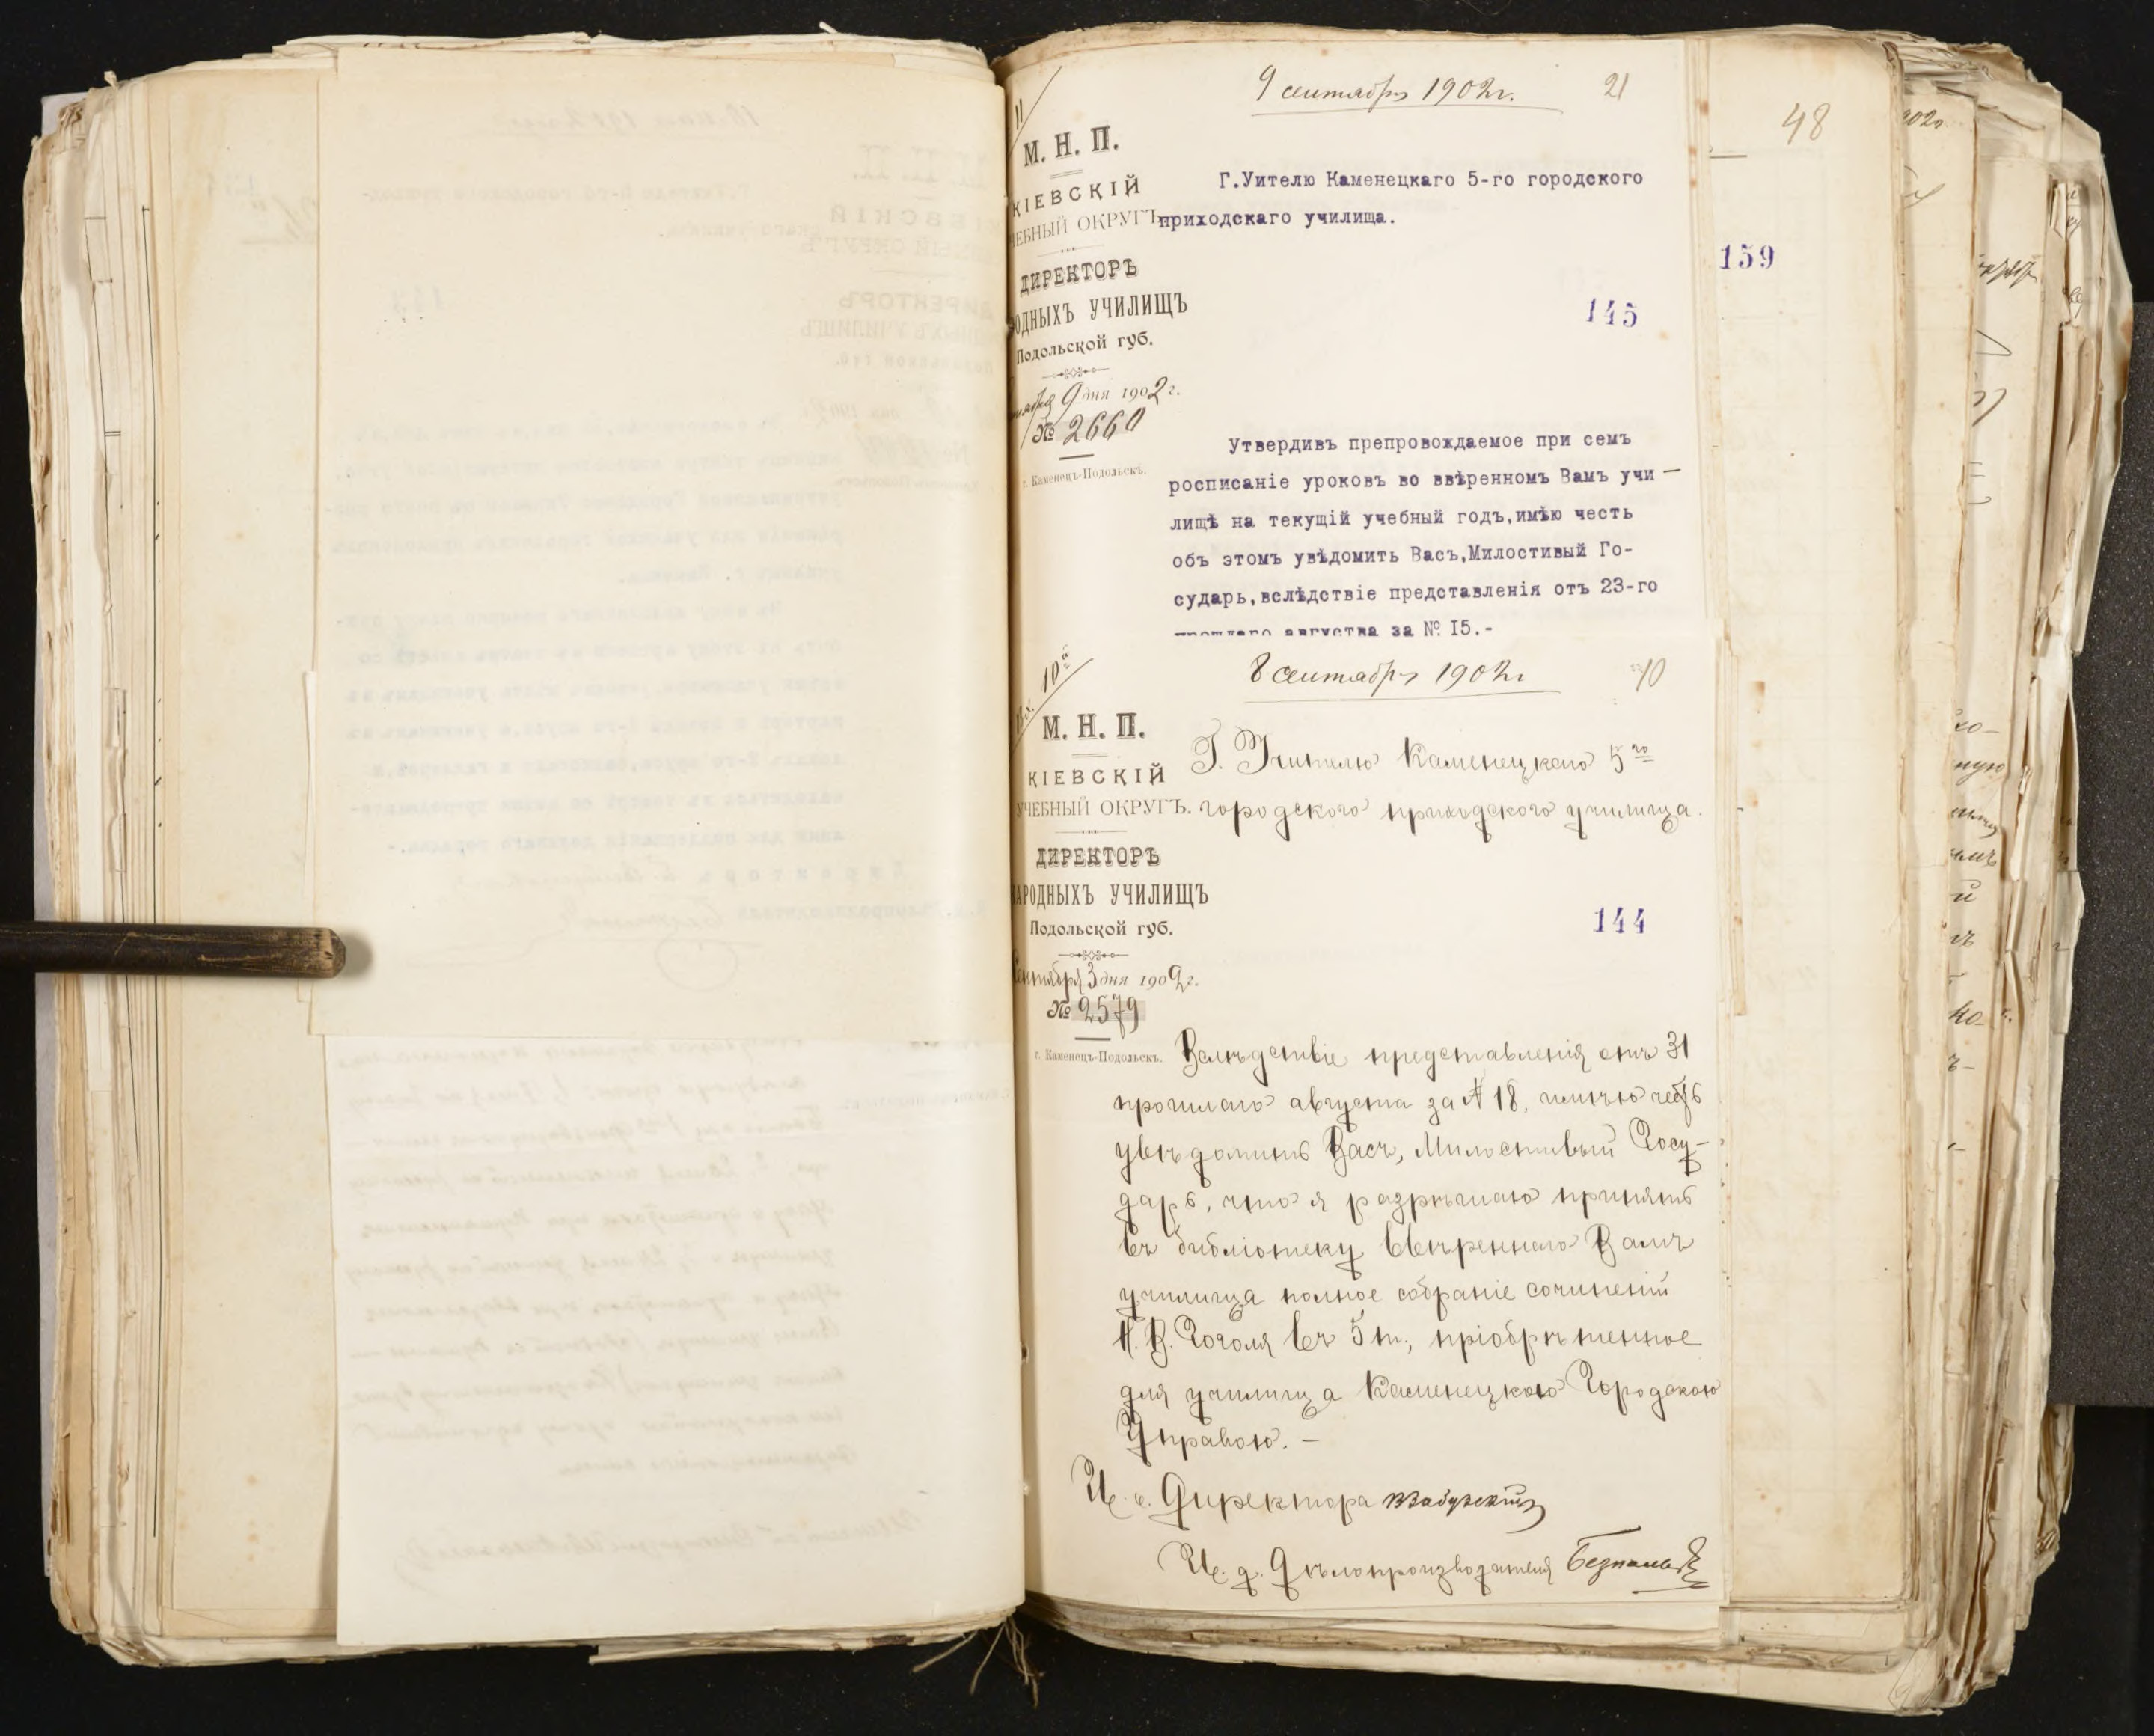 9 сентября 1902 г.
21
11
М. Н. П.
КІЕВСКІЙ
ЧЕБНЫЙ ОКРУГЪ
ДИРЕКТОРЪ
РОДНЫХЪ УЧИЛИЩЪ
Подольской губ.
9 дня 1902 г.
№ 2660
г. Каменецъ-Подольскъ.
Г.Уителю Каменецкаго 5-го городского
приходскаго училища.
145
Утвердивъ препровождаемое при семъ
росписаніе уроковъ во ввѣренномъ Вамъ учи —
лищѣ на текущій учебный годъ,имѣю честь
объ этомъ увѣдомить Васъ,Милостивый Го-
сударь,вслѣдствіе представленія отъ 23-го
прошлаго августва за № I5.-
48
159
8 сентября 1902 г
10
М. Н. П.
КІЕВСКІЙ
УЧЕБНЫЙ ОКРУГЪ.
ДИРЕКТОРЪ
НАРОДНЫХЪ УЧИЛИЩЪ
Подольской губ.
Сентября 3 дня 1902 г.
№ 2579
г. Каменецъ-Подольскъ.
Г. Учителю Каменецкаго 5го
городского приходского училища.
144
Вслѣдствіе представленія отъ 31
прошлаго августа за № 18, имѣю честь
увѣдомить Васъ, Милостивый Госу-
дарь, что я разрѣшаю принять
въ библіотеку ввѣреннаго Вамъ
училища полное собраніе сочиненій
Н. В. Гоголя въ 5 т., пріобрѣтенное
для училища Каменецкою Городскою
Управою. —
И. о. Директора
И. д. Дѣлопроизводителя